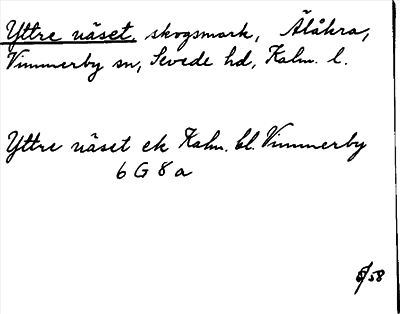 Yttre näset, skogsmark, Älåkra,
Vimmerby sn, Sevede hd, Kalm. l.
Yttre näset ek Kalm. bl. Vimmerby
6 G 8 a
6/58